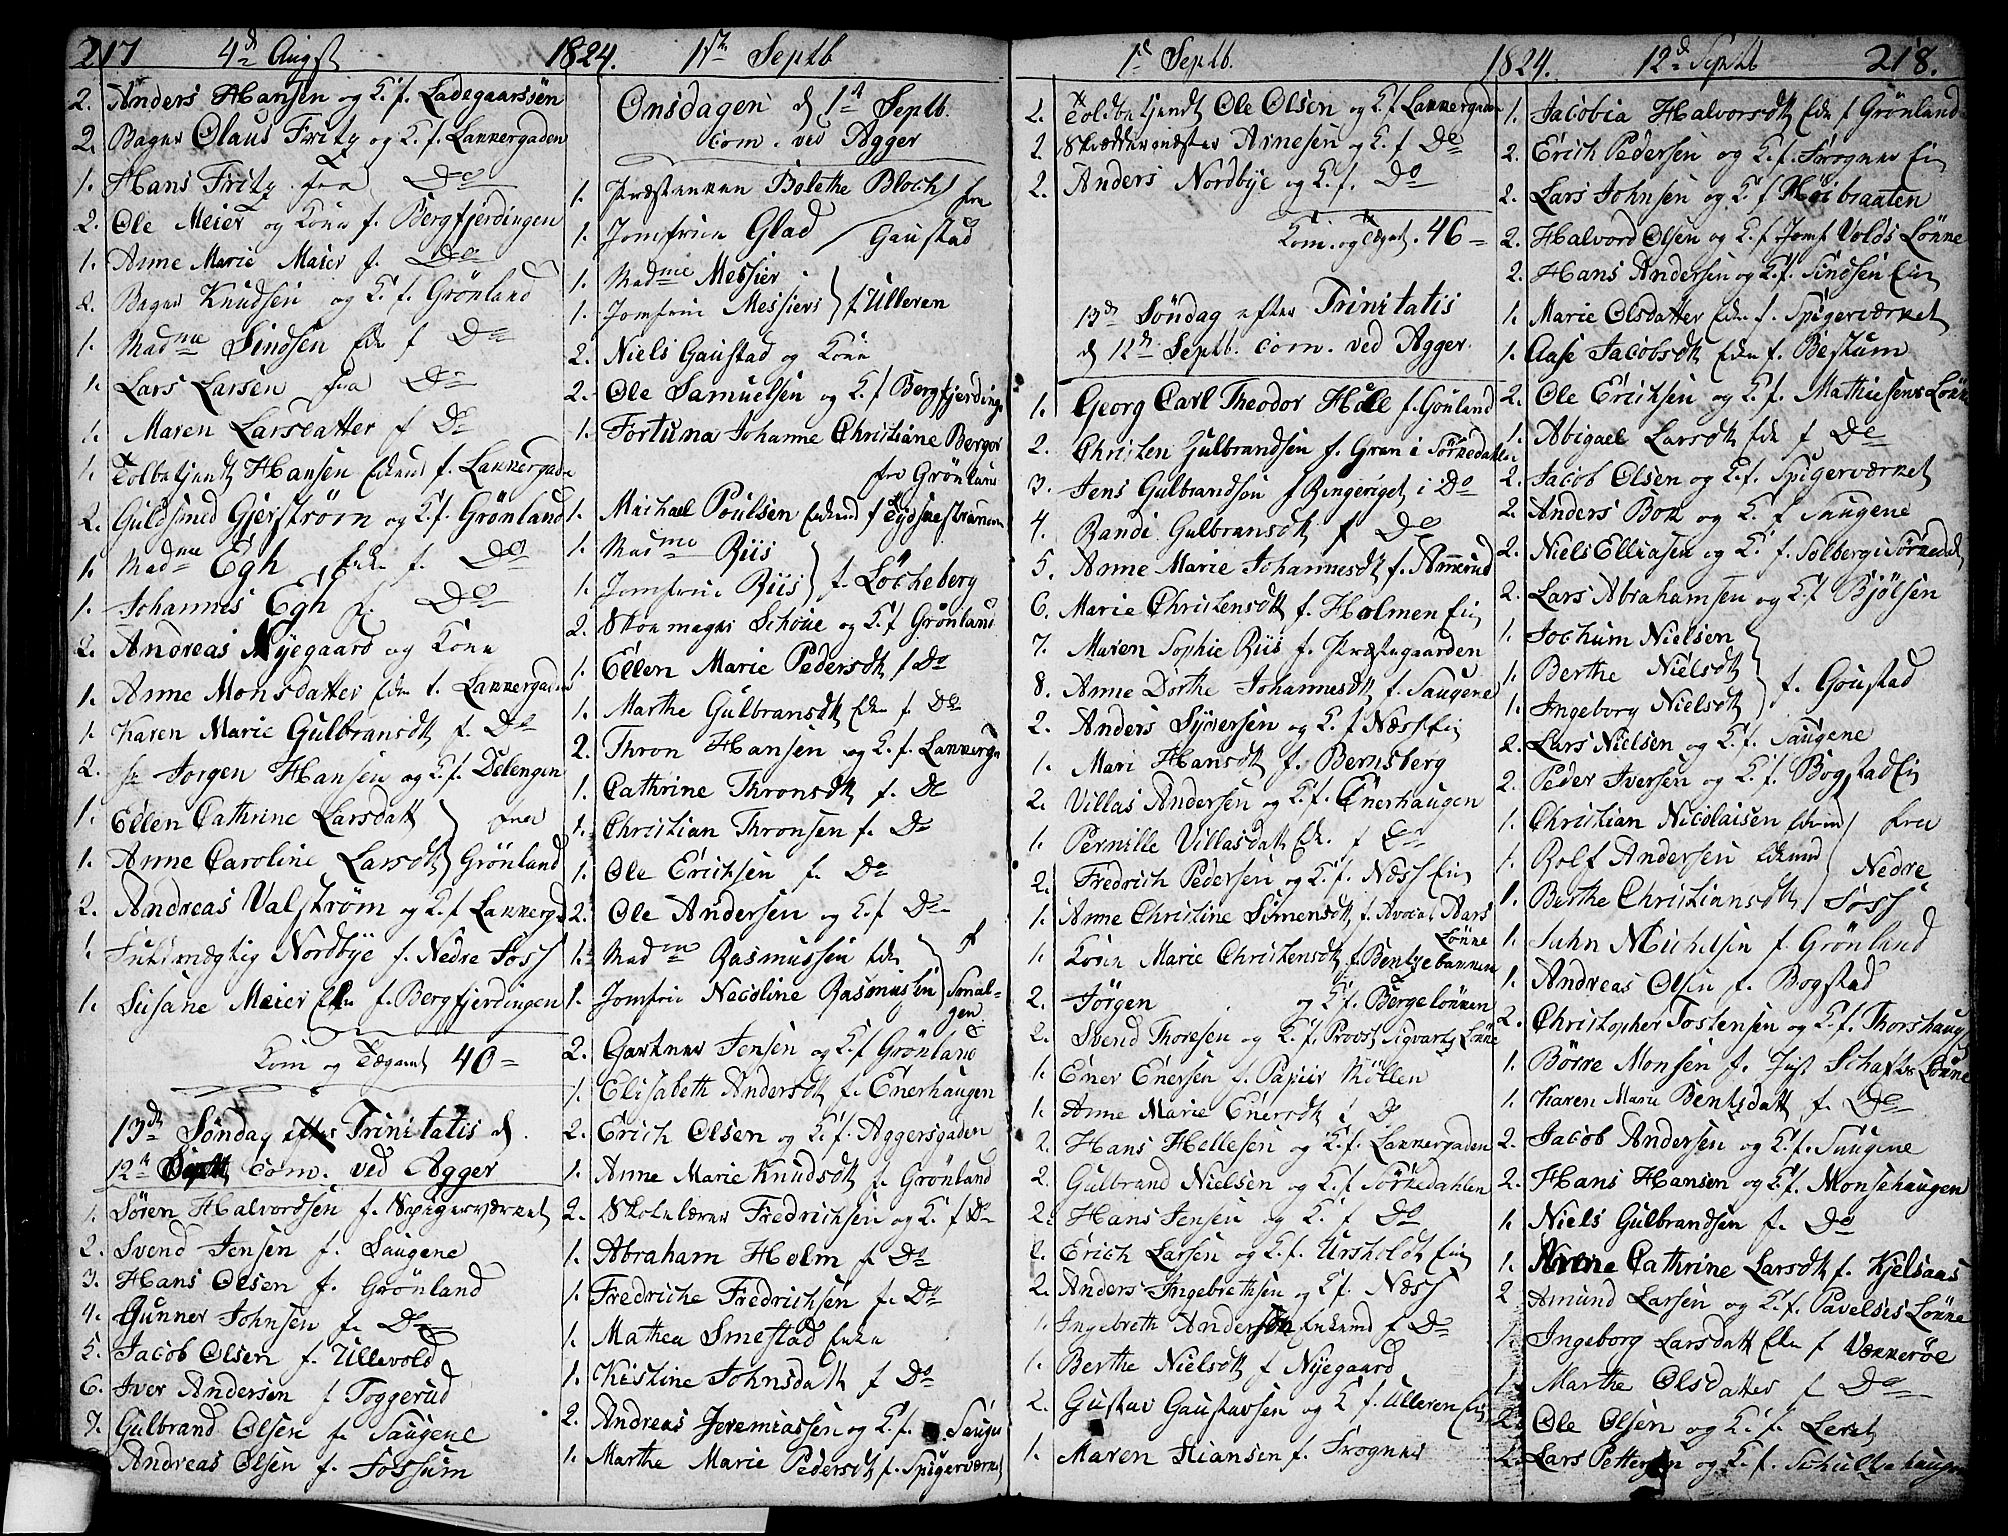 217 4de Augst 1824. 1ste Septb
2. Anders Hansen og K. f. Ladegaarssöen
2. Bager Olaus Fritz og K. f. Lakkergaden
1. Hans Fritz fra Do
2. Ole Meier og Kone f. Bergfjerdingen
1. Anne Marie Maier f. Do
2. Bager Knudsen og K. f. Grönland
1. Madme Sindsen Enke f Do
1. Lars Larsen fra Do
1. Maren Larsdatter f Do
1. Toldbetjendt Hansen f. Lakkergaden
2. Guldsmed Gjerström og K. f. Grönland
1. Madme Egh Enke f. Do
1. Johannes Egh f. Do
2. Andreas Nyegaard og Kone
1. Anne Monsdatter Enke f. Lakkergaden
1. Karen Marie Gulbransdt f. Do
2. Jorgen Hansen og K. f. Delengen
1. Ellen Cathrine Larsdatt fra
1. Anne Caroline Larsdt Grönland
2. Andreas Valström og K. f Lakkergd
1. Fuldmægtig Nordbye f. Nedre Foss
1. Susane Meier Enke f. Bergfjerdingen
Kom og Tægant 40
13de Söndag efter Trinitatis d.
12te Septb com. ved Agger
1. Sören Halvordsen f. Spigerværket
2. Svend Jensen f. Saugene
3. Hans Olsen f. Grönland
4. Gunner Johnsen f. Do
5. Jacob Olsen f. Ullevold
6. Iver Andersen f Toggerud
7. Gulbrand Olsen f. Saugene
Andreas Olsen f. Fossum
Onsdagen d 1te Septb.
com. ved Agger
1. Præstenken Bolethe Bloch fra
1. Jomfrue Glad Gaustad
1. Madme Messier
1. Jomfrue Messiers f Ulleren
2. Niels Gaustad og Kone
2. Ole Samuelsen og K. f Bergfjerding
1. Fortuna Johanne Christiane Berger
fra Grönland
1. Michael Poulsen
1. Madme Riis
1. Jomfrue Riis f. Löcheberg
2. Skomager Schöne og K. f Grönland
1. Ellen Marie Pedersdt f Do
1. Marthe Gulbransdt Enke f Do
2. Thron Hansen og K. f. Lakkerga
1. Cathrine Thronsdt f. Do
1. Christian Thronsen f. Do
1. Ole Erichsen f. Do
2. Ole Andersen og K. f Do
1. Madme Rasmussen Enke f
1. Jomfrue Necoline Rasmussen Smal-
gen
2. Gartner Jensen og K. f Grönland
1. Elisabeth Andersdt f. Enerhaugen
2. Erich Olsen og K. f. Aggersgaden
1. Anne Marie Knudsdt f. Grönland
2. Skolelærer Fredrichsen og K. f Do
1. Abraham Holm f. Do
1. Fredriche Fredrichsen f. Do
1. Mathea Smestad Enke
1. Kistine Johnsdatt f Do
2. Andreas Jeremiassen og K. f. Sauge
1. Marthe Marie Pedersdt f. Spigerværket
1te Septb. 1824. 12te Septb 218.
2. Toldbetjendt Ole Olsen og K. f Lakkergaden
2. Skræddermester Arnesen og K. f Do
2. Anders Nordbye og K. f. Do
Kom. og Tægat. 46
13de Söndag efter Trinitatis
d 12te Septb. com. ved Agger.
1. Georg Carl Theodor Holl f. Gönland
2. Christen Gulbrandsen f. Gran i Sörkedalen
3. Jens Gulbrandsen f Ringeriget i Do
4. Randi Gulbransdt f Do
5. Anne Marie Johannesdt f. Ammerud
6. Marie Christensdt f. Holmen Eie
7. Maren Sophie Riis f. Præstegaarden
8. Anne Dorthe Johannesdt f. Saugene
2. Anders Syversen og K. f Næss Eie
1. Mari Hansdt f. Bernsberg
2. Villas Andersen og K. f. Enerhaugen
1. Pernille Villasdatt Enke f Do
2. Fredrich Pedersen og K. f. Næss Eie
1. Anne Christine Simensdt f. Avocat Aars
Lönne
1. Karen Marie Christensdt f. Bentsebakken
2. Jörgen og K. f. Bergelökken
2. Svend Thoresen og K. f. Provst Sigvarts Lönne
1. Ener Enersen f. Papier Möllen
1. Anne Marie Enersdt f Do
2. Hans Hellesen og K. f. Lakkergaden
2. Gulbrand Nielsen og K. f Sörkedahlen
2. Hans Jensen og K. f Do
2. Erich Larsen og K. f. Ursholdt Eie
2. Anders Ingebrethsen og K. f. Næss
1. Ingebreth Andersen f Do
1. Berthe Nielsdt f Nyegaard
2. Gustav Gaustavsen og K f. Ulleren Eie
1. Maren Hansen f. Frogner
1. Jacobia Halvorsdt Enke f Grönland
2. Erich Pedersen og K. f. Frogner Eie
2. Lars Johnsen og K. f Höibraaten
2. Halvord Olsen og K. f Jomf Volds Lönne
2. Hans Andersen og K. f. Sindsen Eie
1. Marie Olsdatter Enke f. Spigerværket
1. Aase Jacobsdt Enke f. Bestum
2. Ole Eriksen og K. f. Mathiesens Lönne
1. Abigael Larsdt Enke f Do
2. Jacob Olsen og K. f. Spigerværket
2. Anders Bok og K. f Saugene
2. Niels Elliasen og K. f. Solberg i Sörkedal
2. Lars Abrahamsen og K. f Bjölsen
1. Jochum Nielsen
1. Berthe Nielsdt f. Goustad
1. Ingeborg Nielsdt
2. Lars Nielsen og K. f. Saugene
2. Peder Iversen og K. f. Bogstad Eie
1. Christian Nicolaisen fra
1. Rolf Andersen Nedre
1. Berthe Christiansdt Foss
1. Michelsen f Grönland
1. Andreas Olsen f. Bogstad
2. Christopher Tostensen og K. f. Thorshaug
1. Börre Monsen f. Just Schafts Lönne
1. Karen Marie Bentsdatt f. Do
2. Jacob Andersen og K. f. Saugene
2. Hans Hansen og K. f. Monsehaugen
1. Niels Gulbrandsen f. Do
1. Anne Cathrine Larsdt f. Kjelsaas
2 Amund Larsen og K. f. Pavelses Lönne
1. Ingeborg Larsdatt Enke f Vækkeröe
1. Marthe Olsdatter f Do
2. Ole Olsen og K. f. Leret
2. Lars Pettersen og K. f. Schultzehaugen